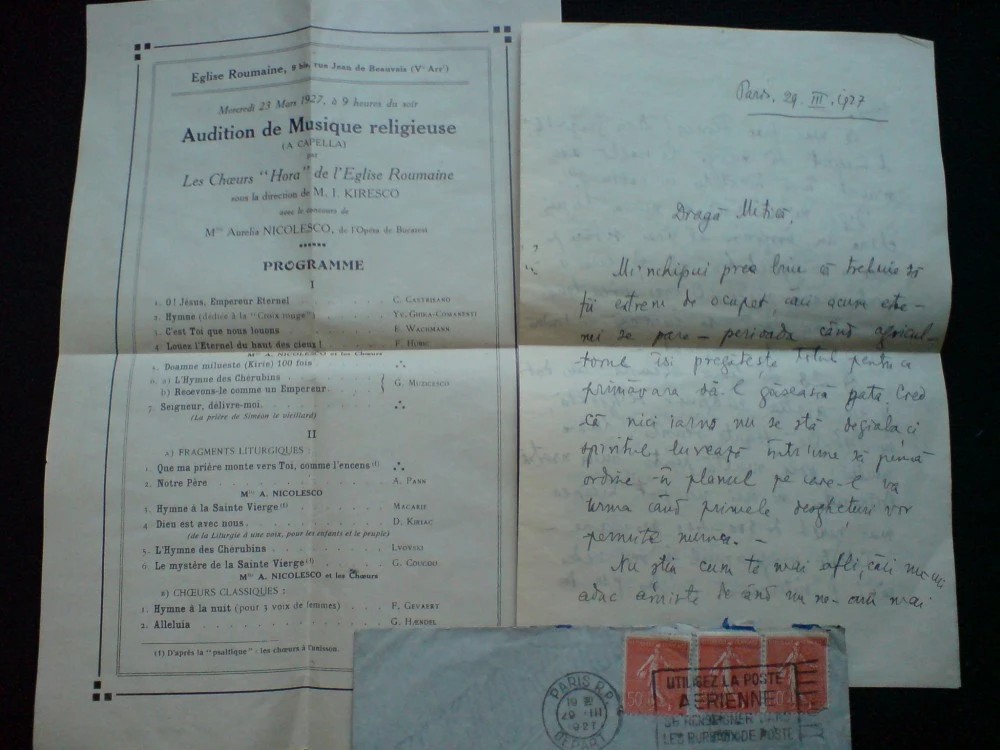 Eglise Roumaine, 9 bis, rue Jean de Beauvais (Vᵉ Arrᵗ)
Mercredi 23 Mars 1927, à 9 heures du soir
Audition de Musique religieuse
(A CAPELLA)
par
Les Chœurs "Hora" de l'Eglise Roumaine
sous la direction de M. I. KIRESCO
avec le concours de
Mˡˡᵉ Aurelia NICOLESCO, de l'Opéra de Bucarest
PROGRAMME
I
1. O! Jésus, Empereur Eternel C. CASTRISANO
2. Hymne (dédiée à la "Croix rouge") YV. GHIKA-COMANESTI
3. C'est Toi que nous louons E. WACHMANN
4. Louez l'Eternel du haut des cieux!
Mˡˡᵉ A. NICOLESCO et les Chœurs
5. Doamne milueste (Kirie) 100 fois
6. a) L'Hymne des Chérubins
b) Recevons-le comme un Empereur
G. MUZICESCO
7. Seigneur, délivre-moi
(La prière de Siméon le vieillard)
II
A) FRAGMENTS LITURGIQUES :
1. Que ma prière monte vers Toi, comme l'encens (1)
2. Notre Père A. PANN
Mˡˡᵉ A. NICOLESCO
3. Hymne à la Sainte Vierge (1) MACARIE
4. Dieu est avec nous D. KIRIAC
(de la Liturgie à une voix, pour les enfants et le peuple)
5. L'Hymne des Chérubins LVOVOU
6. Le mystère de la Sainte Vierge (1) G. COUCOU
Mˡˡᵉ A. NICOLESCO et les Chœurs
B) CHŒURS CLASSIQUES :
1. Hymne à la nuit (pour 3 voix de femmes) F. GEVAERT
2. Alleluia G. HÆNDEL
(1) D'après la "psaltique" : les chœurs à l'unisson.
Paris, 29 III, 1927
Dragă Mitică,
Mi'nchipui prea bine că trebuie să
fii extrem de ocupat, căci acum este-
mi se pare - perioada când agricul-
torul își pregătește totul pentru ca
primăvara să-l găsească gata. Cred
că nici iarna nu se stă degiaba ci
spiritul lucrează întruna să pună
ordine în planul pe care-l va
urma când primele desghețuri vor
permite munca. -
Nu știu cum te mai afli, căci nu-mi
aduc aminte de când nu ne-am mai
PARIS R.P.
29 III
1927
DEPART
UTILISEZ LA POSTE
AERIENNE
SE RENSEIGNER DANS
LES BUREAUX DE POSTE